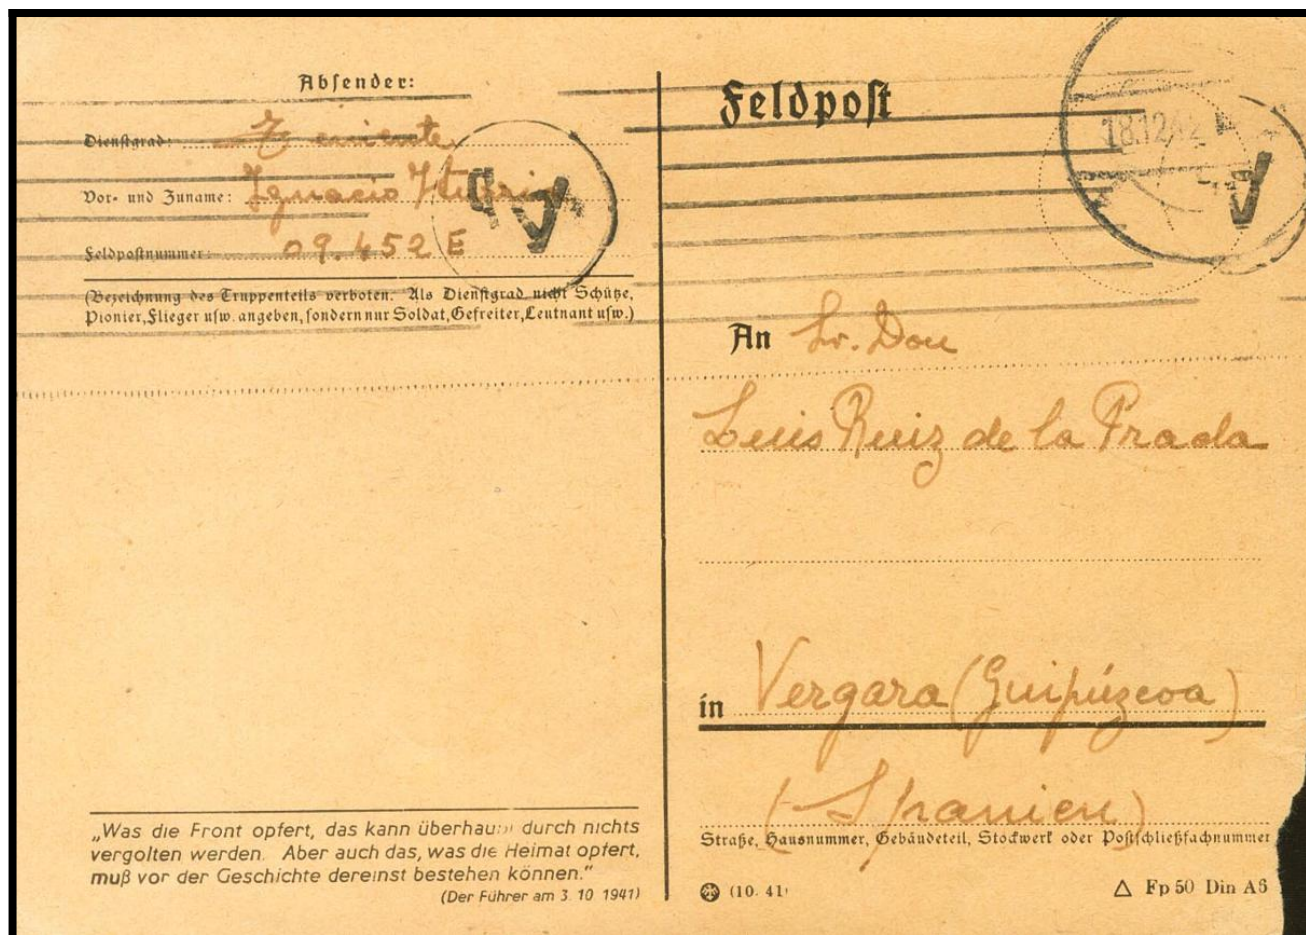 Absender:
Dienstgrad: Teniente
Vor- und Zuname: Ignacio
Feldpostnummer: 09.452 E
(Bezeichnung des Truppenteils verboten. Als Dienstgrad nicht Schütze,
Pionier, Flieger usw. angeben, sondern nur Soldat, Gefreiter, Leutnant usw.)
„Was die Front opfert, das kann überhaupt durch nichts
vergolten werden. Aber auch das, was die Heimat opfert,
muß vor der Geschichte dereinst bestehen können.“
(Der Führer am 3. 10. 1941)
Feldpost
18.12.42
An Sr. Don
Luis Ruiz de la Prada
in Vergara (Guipúzcoa)
(Spanien)
Straße, Hausnummer, Gebäudeteil, Stockwerk oder Postschließfachnummer
(10. 41)
△ Fp 50 Din A6